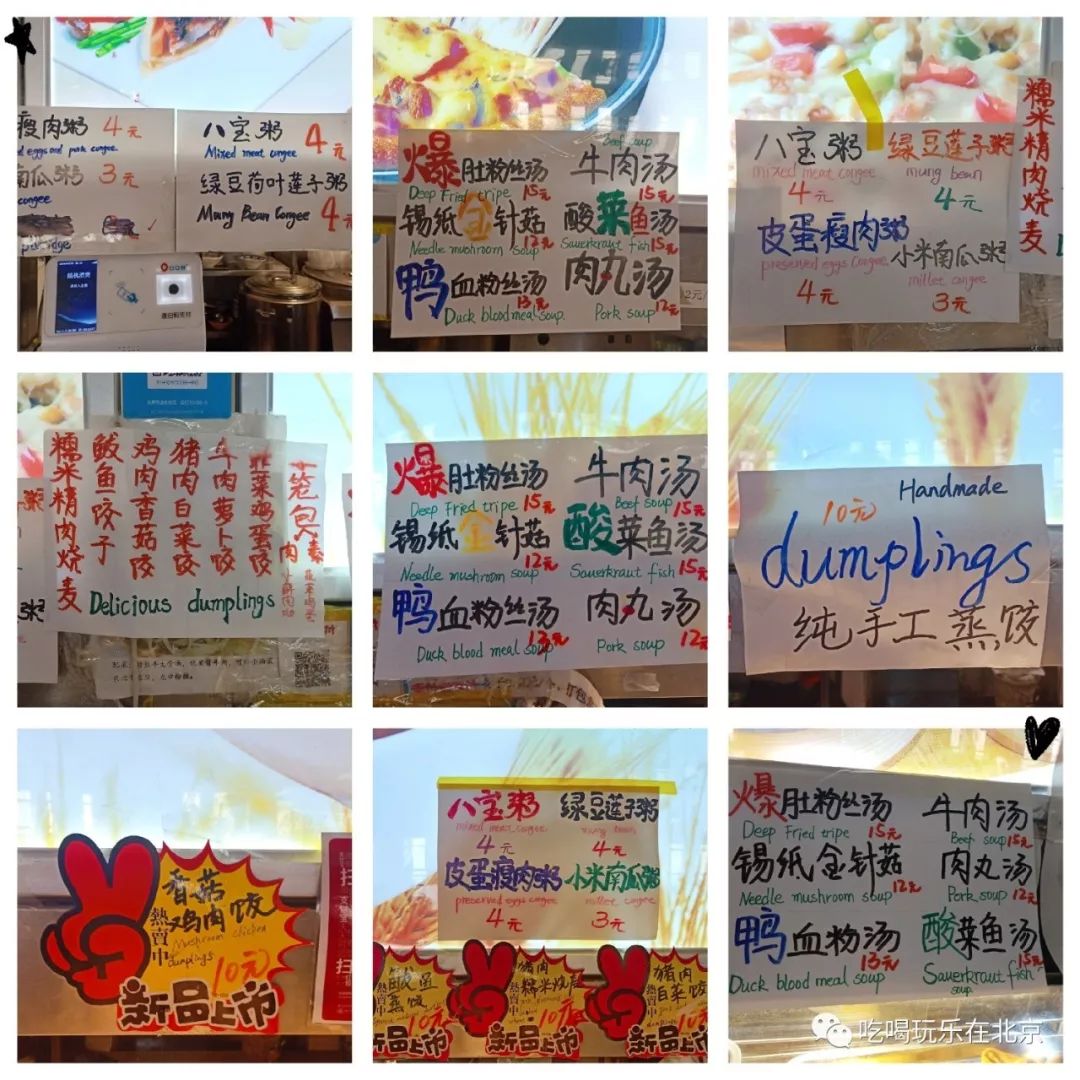 瘦肉粥 4元
d eggs and pork congee
南瓜粥 3元
congee
八宝粥 4元
Mixed meat congee
绿豆荷叶莲子粥
Mung Bean Congee 4元
爆肚粉丝汤
Deep Fried tripe 15元
锡纸金针菇
Needle mushroom soup 12元
鸭血粉丝汤
13元
Duck blood meal soup
Beef soup
牛肉汤
15元
酸菜鱼汤
Sauerkraut fish 15元
肉丸汤
Pork soup 12元
八宝粥
mixed meat congee
4元
绿豆莲子粥
mung bean
4元
皮蛋瘦肉粥
preserved eggs congee
4元
小米南瓜粥
millet congee
3元
糯米精肉烧麦
糯米精肉烧麦
鲅鱼饺子
鸡肉香菇饺
猪肉白菜饺
牛肉萝卜饺
韭菜鸡蛋饺
Delicious dumplings
爆肚粉丝汤
Deep Fried tripe 15元
锡纸金针菇
12元
Needle mushroom soup
鸭血粉丝汤
Duck blood meal soup 13元
牛肉汤
Beef soup 15元
酸菜鱼汤
Sauerkraut fish 15元
肉丸汤
Pork soup 12元
Handmade
10元
dumplings
纯手工蒸饺
香菇
鸡肉饺
熱賣中
Mushroom chicken
dumplings
10元
新品上市
八宝粥
mixed meat congee
4元
绿豆莲子粥
mung bean
4元
皮蛋瘦肉粥
preserved eggs congee
4元
小米南瓜粥
millet congee
3元
鲅鱼
蒸饺
熱賣中
10元
新品上市
猪肉
糯米烧麦
熱賣中
10元
新品上市
猪肉
白菜饺
熱賣中
10元
新品上市
爆肚粉丝汤
Deep Fried tripe 15元
锡纸金针菇
12元
Needle mushroom soup
鸭血粉汤
13元
Duck blood meal soup
牛肉汤
Beef soup 15元
肉丸汤
Pork soup 12元
酸菜鱼汤
15元
Sauerkraut fish
soup
吃喝玩乐在北京